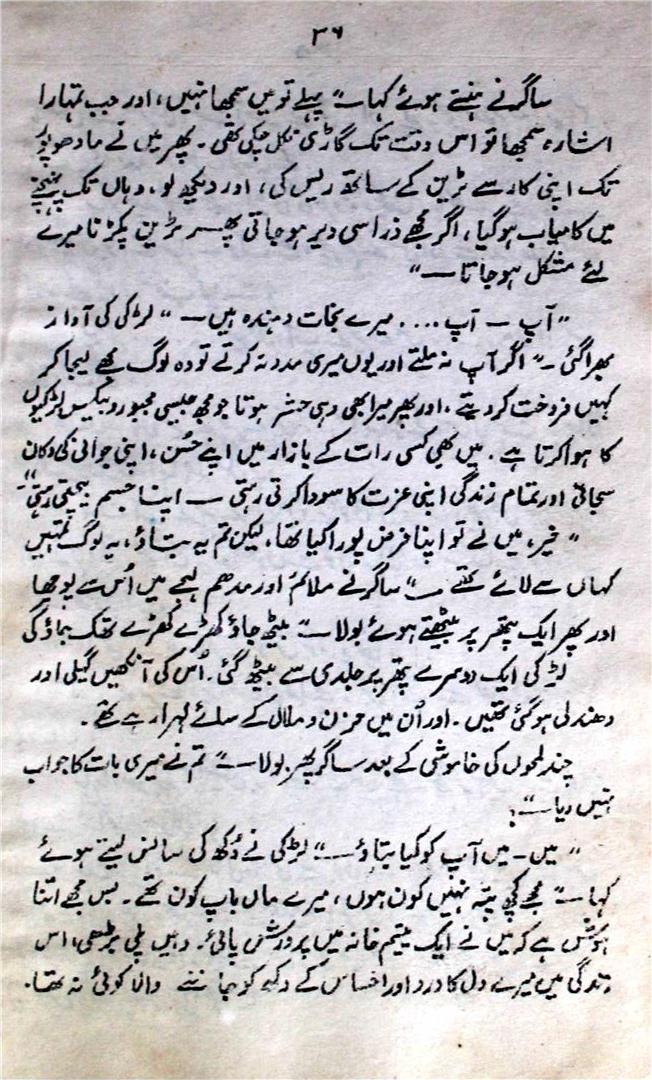 ۳۶
ساگر نے ہنستے ہوئے کہا — " پہلے تو میں سمجھا نہیں، اور جب تمہارا
اشارہ سمجھا تو اس وقت تک گاڑی نکل چکی تھی۔ پھر میں نے مادھوپور
تک اپنی کار سے ٹرین کے ساتھ ریس کی، اور دیکھ لو، وہاں تک پہنچنے
میں کامیاب ہوگیا، اگر مجھے ذرا سی دیر ہوجاتی پھر ٹرین پکڑنا میرے
لئے مشکل ہوجاتا — "
" آپ — آپ .... میرے نجات دہندہ ہیں — " لڑکی کی آواز
بھرا گئی — " اگر آپ نہ ملتے اور یوں میری مدد نہ کرتے تو وہ لوگ مجھے لیجا کر
کہیں فروخت کردیتے، اور پھر میرا بھی وہی حشر ہوتا جو مجھ جیسی مجبور و بیکس لڑکیوں
کا ہوا کرتا ہے۔ میں بھی کسی رات کے بازار میں اپنے حُسن، اپنی جوانی کی دکان
سجاتی اور تمام زندگی اپنی عزت کا سودا کرتی رہتی — اپنا جسم بیچتی رہتی —"
" خیر، میں نے تو اپنا فرض پورا کیا تھا۔ لیکن تم یہ بتاؤ، یہ لوگ تمہیں
کہاں سے لائے تھے — " ساگر نے ملائم اور مدھم لہجے میں اُس سے پوچھا
اور پھر ایک پتھر پر بیٹھتے ہوئے بولا — " بیٹھ جاؤ کھڑے کھڑے تھک جاؤ گی
لڑکی ایک دوسرے پتھر پر جلدی سے بیٹھ گئی۔ اُس کی آنکھیں گیلی اور
دھندلی ہوگئی تھیں۔ اور اُن میں حزن و ملال کے سائے لہرا رہے تھے۔
چند لمحوں کی خاموشی کے بعد ساگر پھر بولا — " تم نے میری بات کا جواب
نہیں دیا — "؟
" میں — میں آپ کو کیا بتاؤں — " لڑکی نے دُکھ کی سانس لیتے ہوئے
کہا — " مجھے کچھ پتہ نہیں کون ہوں، میرے ماں باپ کون تھے۔ بس مجھے اتنا
ہوش ہے کہ میں نے ایک یتیم خانہ میں پرورش پائی۔ وہیں پلی بڑھی، اس
زندگی میں میرے دل کا درد اور احساس کے دکھ کو جاننے والا کوئی نہ تھا۔